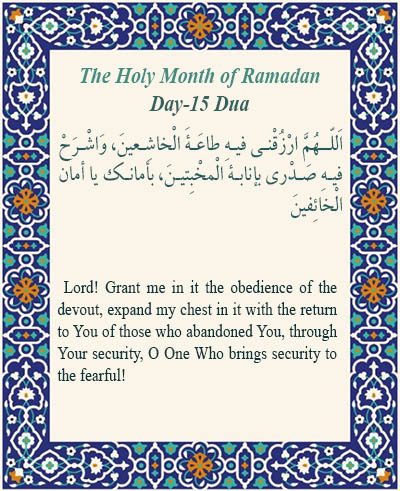 The Holy Month of Ramadan
Day-15 Dua
اَللّـهُمَّ ارْزُقْنى فيهِ طاعَةَ الْخاشِعينَ، وَاشْرَحْ
فيهِ صَدْرى بِاِنابَةِ الْمُخْبِتينَ، بِأَمانِكَ يا اَمانَ
الْخائِفينَ
Lord! Grant me in it the obedience of the
devout, expand my chest in it with the return
to You of those who abandoned You, through
Your security, O One Who brings security to
the fearful!